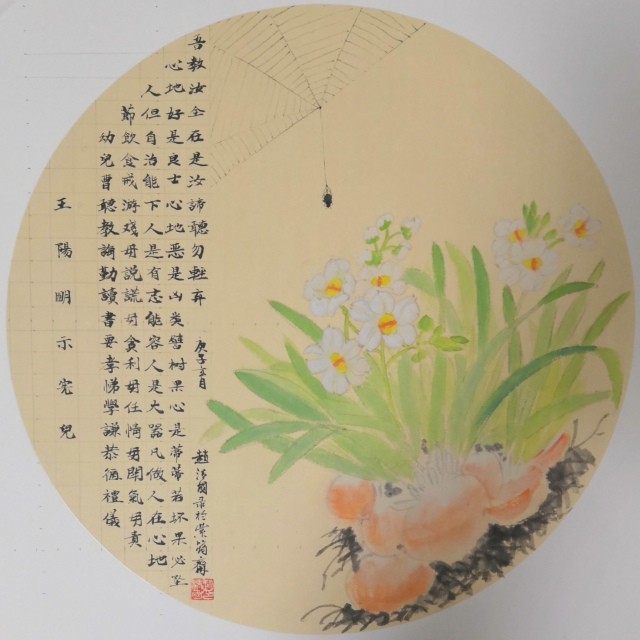 王陽明示宪兒
幼兒曹聽教誨勤讀書要孝悌學謙恭循禮儀
節飲食戒游戏毋說謊毋貪利毋任情毋鬪氣毋責
人但自治能下人是有志能容人是大器凡做人在心地
心地好是良士心地恶是凶类譬树果心是蒂蒂若坏果必坠
吾教汝全在是汝諦聽勿輕弃
庚子
趙 於紫筠齋